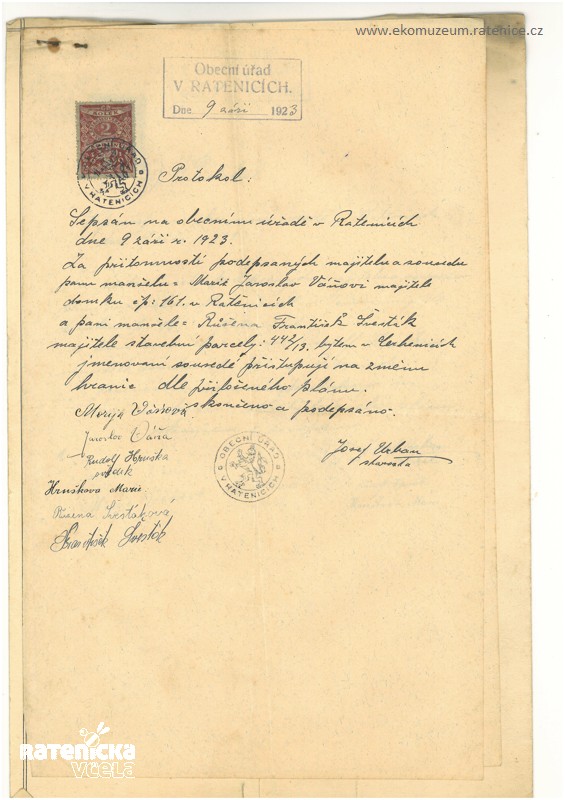 www.ekomuzeum.ratenice.cz
Obecní úřad
V RATENICÍCH.
Dne 9 září 1923
2
OBECNÍ ÚŘAD
V RATENICÍCH
Protokol:
Sepsán na obecním úřadě v Ratenicích
dne 9 září r. 1923.
Za přítomnosti podepsaných majitelu a sousedu
panu manželu= Marie Jaroslav Váňovi majitele
domku čp: 161. v Ratěnicích
a paní manžele= Růžena František Šversták
majitele stavební parcely: 442/13. bytem v Cerhenicích
jmenovaní sousedé přistupují na změnu
hranic dle přiloženého plánu.
skončeno a podepsáno.
Marija Váňová
Jaroslav Váňa
Rudolf Hruška
svědek
Hrušková Marie
František
OBECNÍ ÚŘAD
V RATENICÍCH
Josef Urban
starosta
RATENICKÁ
VČELA